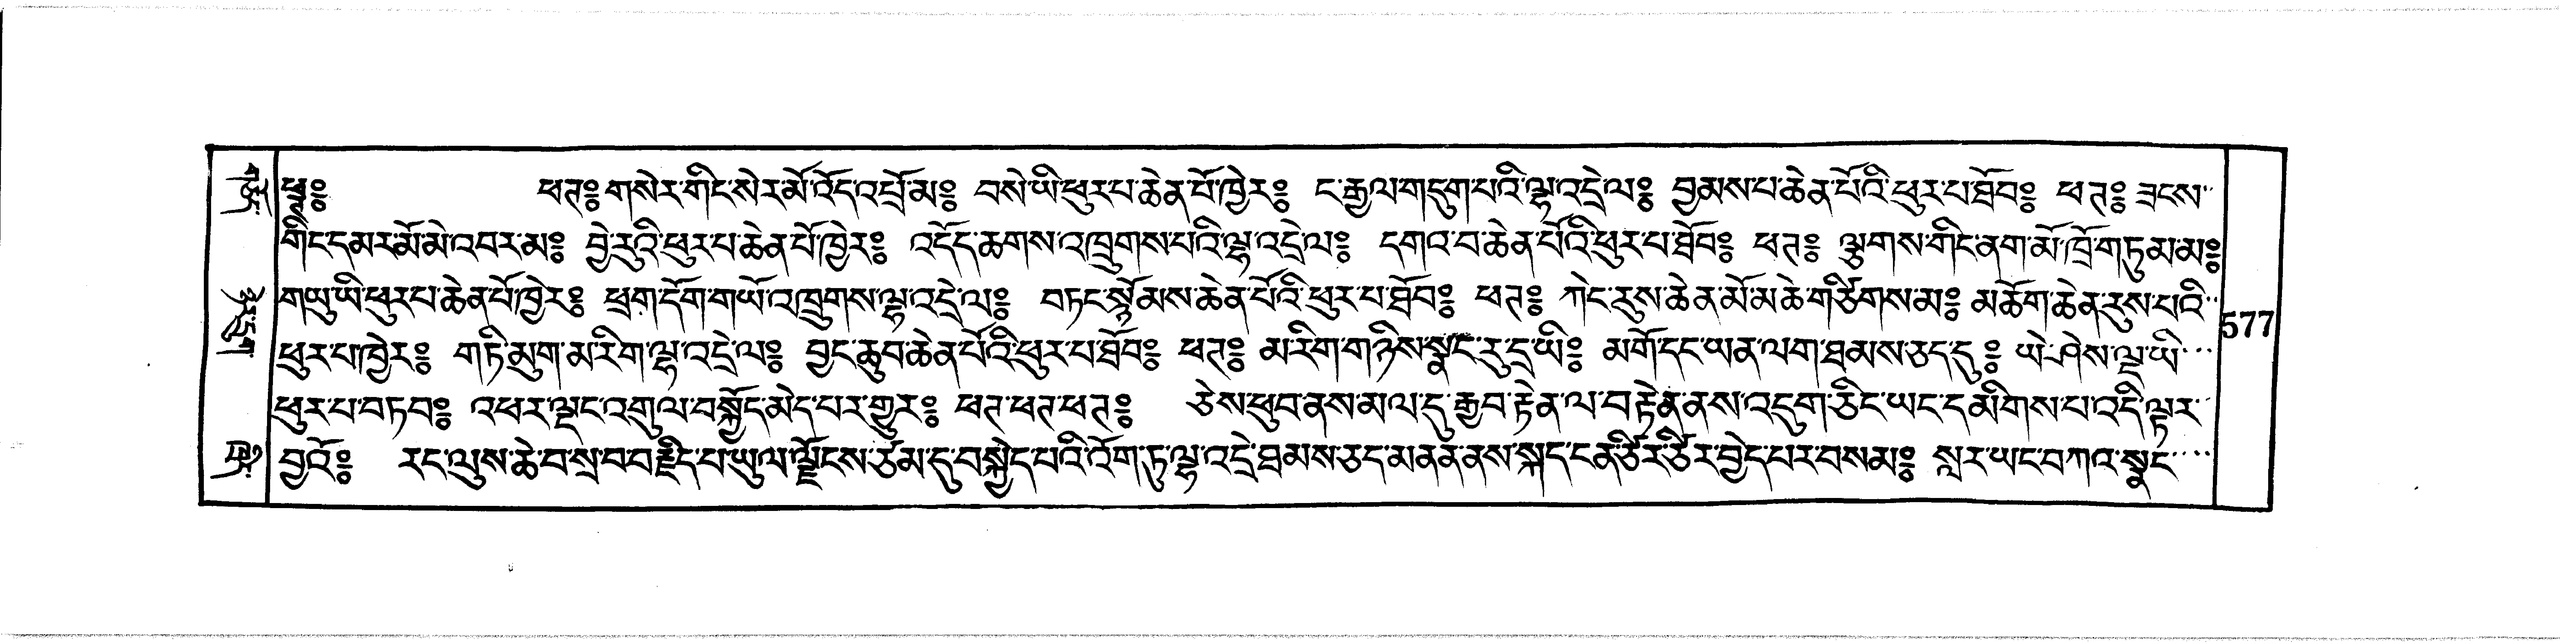 ཕཊ༔ ཕཊ༔ གསེར་གིང་སེར་མོ་འོད་འཕྲོ་མ༔ བསེ་ཡི་ཕུར་པ་ཆེན་པོ་ཁྱེར༔ ང་རྒྱལ་གདུག་པའི་ལྷ་འདྲེ་ལ༔ བྱམས་པ་ཆེན་པོའི་ཕུར་པ་ཐོབ༔ ཕཊ༔ ཟངས་
གིང་དམར་མོ་མེ་འབར་མ༔ བྱེ་རུའི་ཕུར་པ་ཆེན་པོ་ཁྱེར༔ འདོད་ཆགས་འཁྲུགས་པའི་ལྷ་འདྲེ་ལ༔ དགའ་བ་ཆེན་པོའི་ཕུར་པ་ཐོབ༔ ཕཊ༔ ལྕགས་གིང་ནག་མོ་ཁྲོ་གཏུམ་མ༔
གཡུ་ཡི་ཕུར་པ་ཆེན་པོ་ཁྱེར༔ ཕྲག་དོག་གཡོ་འཁྲུགས་ལྷ་འདྲེ་ལ༔ བཏང་སྙོམས་ཆེན་པོའི་ཕུར་པ་ཐོབ༔ ཕཊ༔ ཀེང་རུས་ཆེན་མོ་མཆེ་གཙིགས་མ༔ མཆོག་ཆེན་རུས་པའི་
577
ཕུར་པ་ཁྱེར༔ གཏི་མུག་མ་རིག་ལྷ་འདྲེ་ལ༔ བྱང་ཆུབ་ཆེན་པོའི་ཕུར་པ་ཐོབ༔ ཕཊ༔ མ་རིག་གཉིས་སྣང་རུ་དྲ་ཡི༔ མགོ་དང་ཡན་ལག་ཐམས་ཅད་དུ༔ ཡེ་ཤེས་ལྔ་ཡི་
ཕུར་པ་བཏབ༔ འཕར་ལྡང་འགུལ་བསྐྱོད་མེད་པར་གྱུར༔ ཕཊ་ཕཊ་ཕཊ༔ ཅེས་ཕུབ་ནས་མལ་དུ་རྒྱབ་རྟེན་ལ་བརྟེན་ནས་འདུག་ཅིང་ཡང་དམིགས་པ་འདི་ལྟར་
བྱའོ༔ རང་ལུས་ཆེ་བ་སྲ་བ་བརྗིད་པ་ཡུལ་ལྗོངས་ཙམ་དུ་བསྐྱེད་པའི་འོག་ཏུ་ལྷ་འདྲེ་ཐམས་ཅད་མནན་ནས་སྐད་ངན་ཙིར་ཙིར་བྱེད་པར་བསམ༔ སླར་ཡང་བཀའ་སྣང་